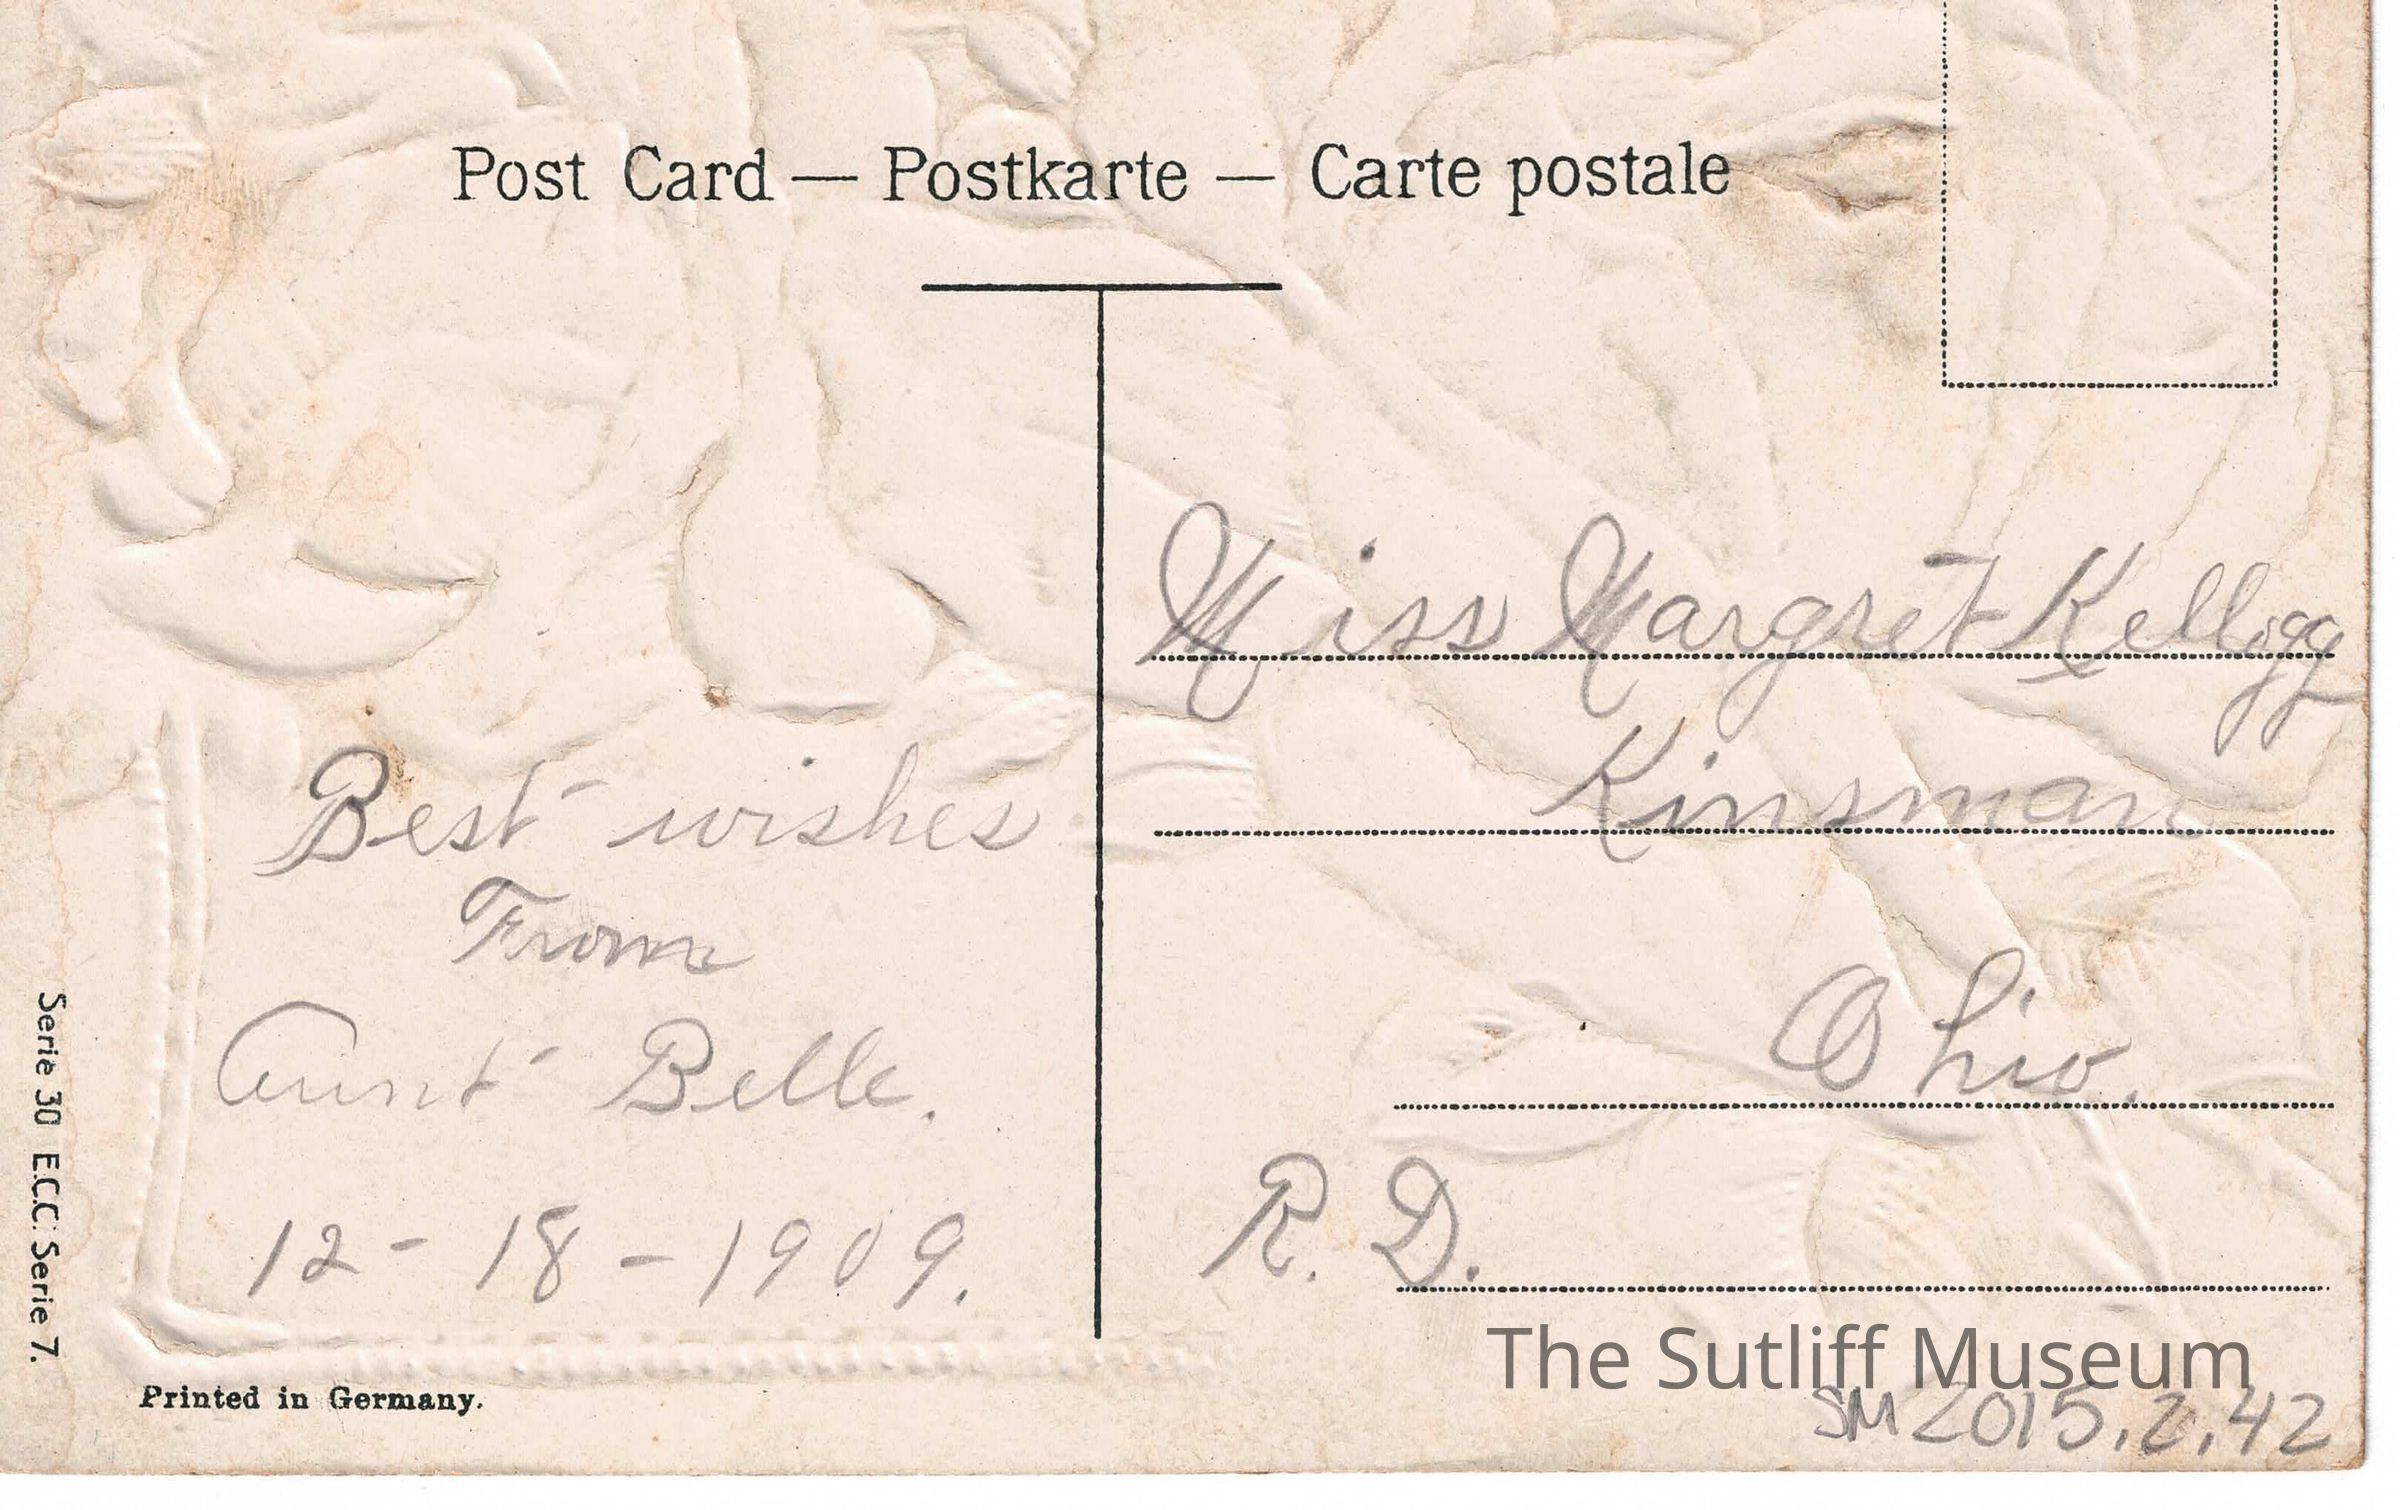 Post Card — Postkarte — Carte postale
Best wishes
From
Aunt Belle.
12 - 18 - 1909.
Miss Margret Kellogg
Kinsman
Ohio.
R. D.
Serie 30 E.C.C. Serie 7.
Printed in Germany.
The Sutliff Museum
SM 2015.2.42